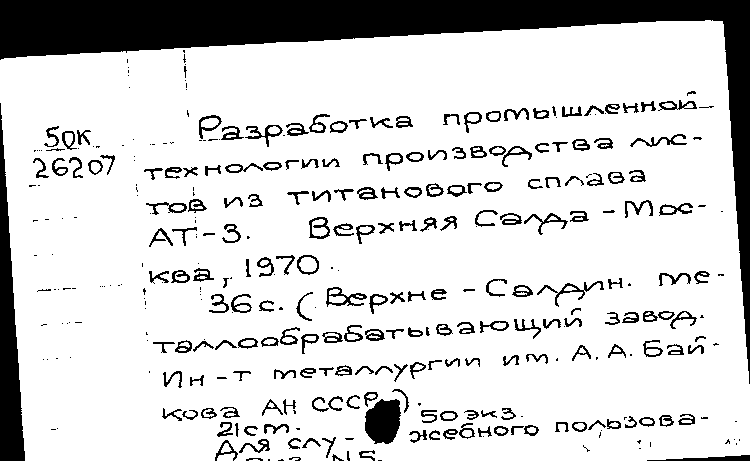 50к
26207
Разработка промышленной
технологии производства лис-
тов из титанового сплава
АТ-3. Верхняя Салда - Мос-
ква, 1970.
36 с. (Верхне-Салдин. ме-
таллообрабатывающий завод.
Ин-т металлургии им. А.А. Бай-
кова АН СССР).
21 см. 50 экз.
Для слу- жебного пользова-